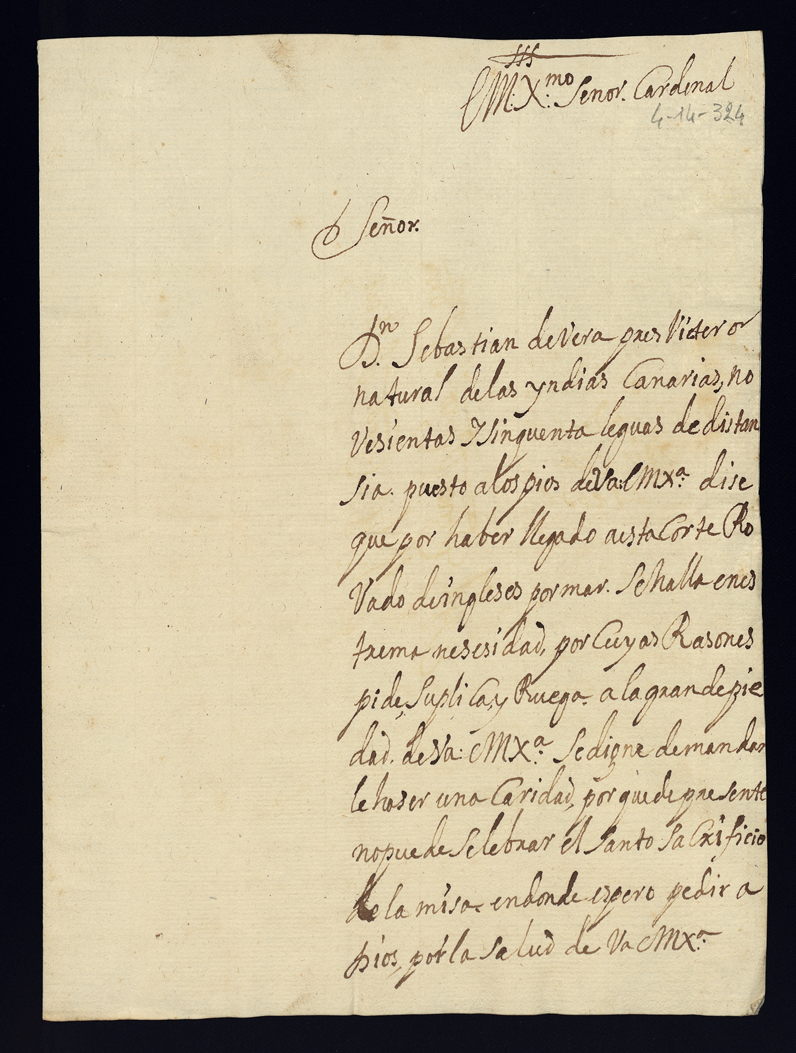 EMi:Xmo Señor. Cardenal
4-14-324
Señor.
Dn. Sebastian de Vera presVitero
natural de las yndias Canarias, no
Vesientas Ysinquenta leguas de distan
sia. puesto alos pios de Va: EMXa. dise
que por haber llegado aesta Corte Ro
Vado de ingleses por mar. Sehalla enes
trema nesesidad, por Cuyas Rasones
pide, Supli Ca, y Ruega a la grande pie
dad. de Va: EMXa. Sedigne demandar
le haser una Caridad, porque de presente
nopuede Selebrar el Santo SaCrificio
de la misa endonde espero pedir a
Dios, por la Salud de Va EMXa.